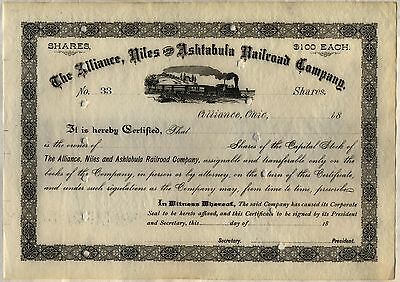 SHARES. $100 EACH.
The Alliance, Niles and Ashtabula Railroad Company.
No. 33 Shares.
Alliance, Ohio, 18
It is hereby Certified, That
is the owner of Shares of the Capital Stock of
The Alliance, Niles and Ashtabula Railroad Company, assignable and transferable only on
the books of the Company, in person or by attorney, on the return of this Certificate,
and under such regulations as the Company may, from time to time, prescribe.
In Witness Whereof, The said Company has caused its Corporate
Seal to be hereto affixed, and this Certificate to be signed by its President
and Secretary, this day of 18
Secretary. President.